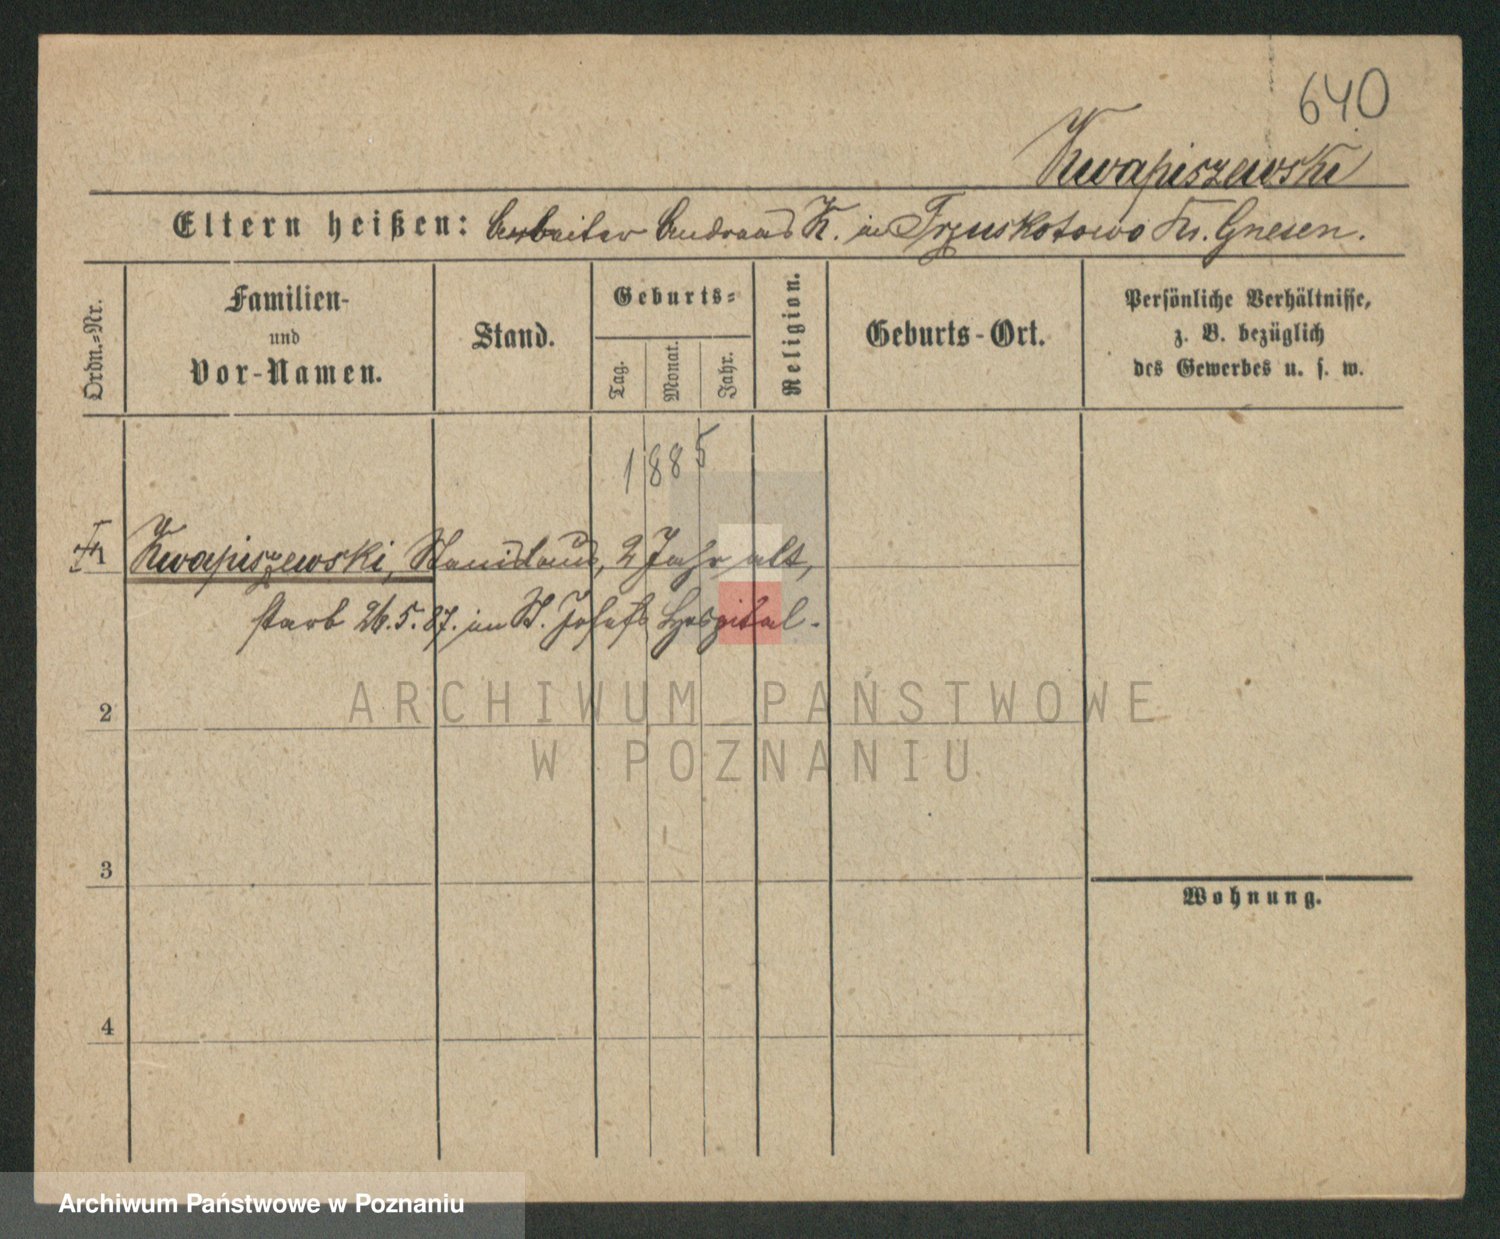 640
Kwapiszewski
Eltern heißen: Arbeiter Andreas K. in Trzuskotowo Kr. Gnesen.
Ordn.-Nr.
Familien-
und
Vor-Namen.
Stand.
Geburts-
Tag.
Monat.
Jahr.
Religion.
Geburts-Ort.
Persönliche Verhältnisse,
z. B. bezüglich
des Gewerbes u. s. w.
1885
1 Kwapiszewski, Stanislaus, 2 Jahr alt,
starb 26.5.87. im St. Josefs Hospital.
2
3
4
Wohnung.
ARCHIWUM PAŃSTWOWE
W POZNANIU
Archiwum Państwowe w Poznaniu